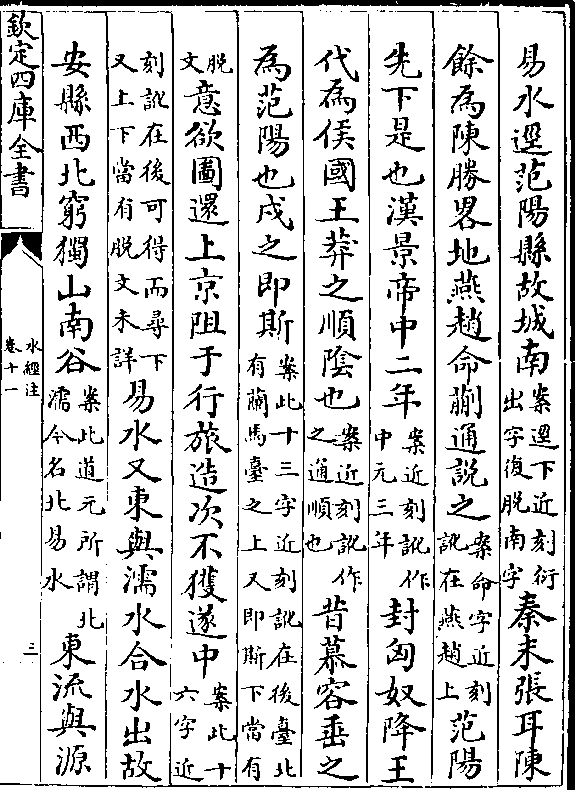 易水逕范陽縣故城南案逕下近刻衍出字復脫南字秦末張耳陳
餘為陳勝畧地燕趙命蒯通說之案命字近刻訛在燕趙上范陽
先下是也漢景帝中二年案近刻訛作中元三年封匈奴降王
代為侯國王莽之順陰也案近刻訛作之通順也昔慕容垂之
為范陽也戍之即斯案此十三字近刻訛在後臺北有蘭馬臺之上又即斯下當有
脫文意欲圖還上京阻于行旅造次不獲遂中案此十六字近
刻訛在後可得而尋下又上下當有脫文未詳易水又東與濡水合水出故
安縣西北窮獨山南谷案此道元所謂北濡今名北易水東流與源
欽定四庫全書
水經注
卷十一
三